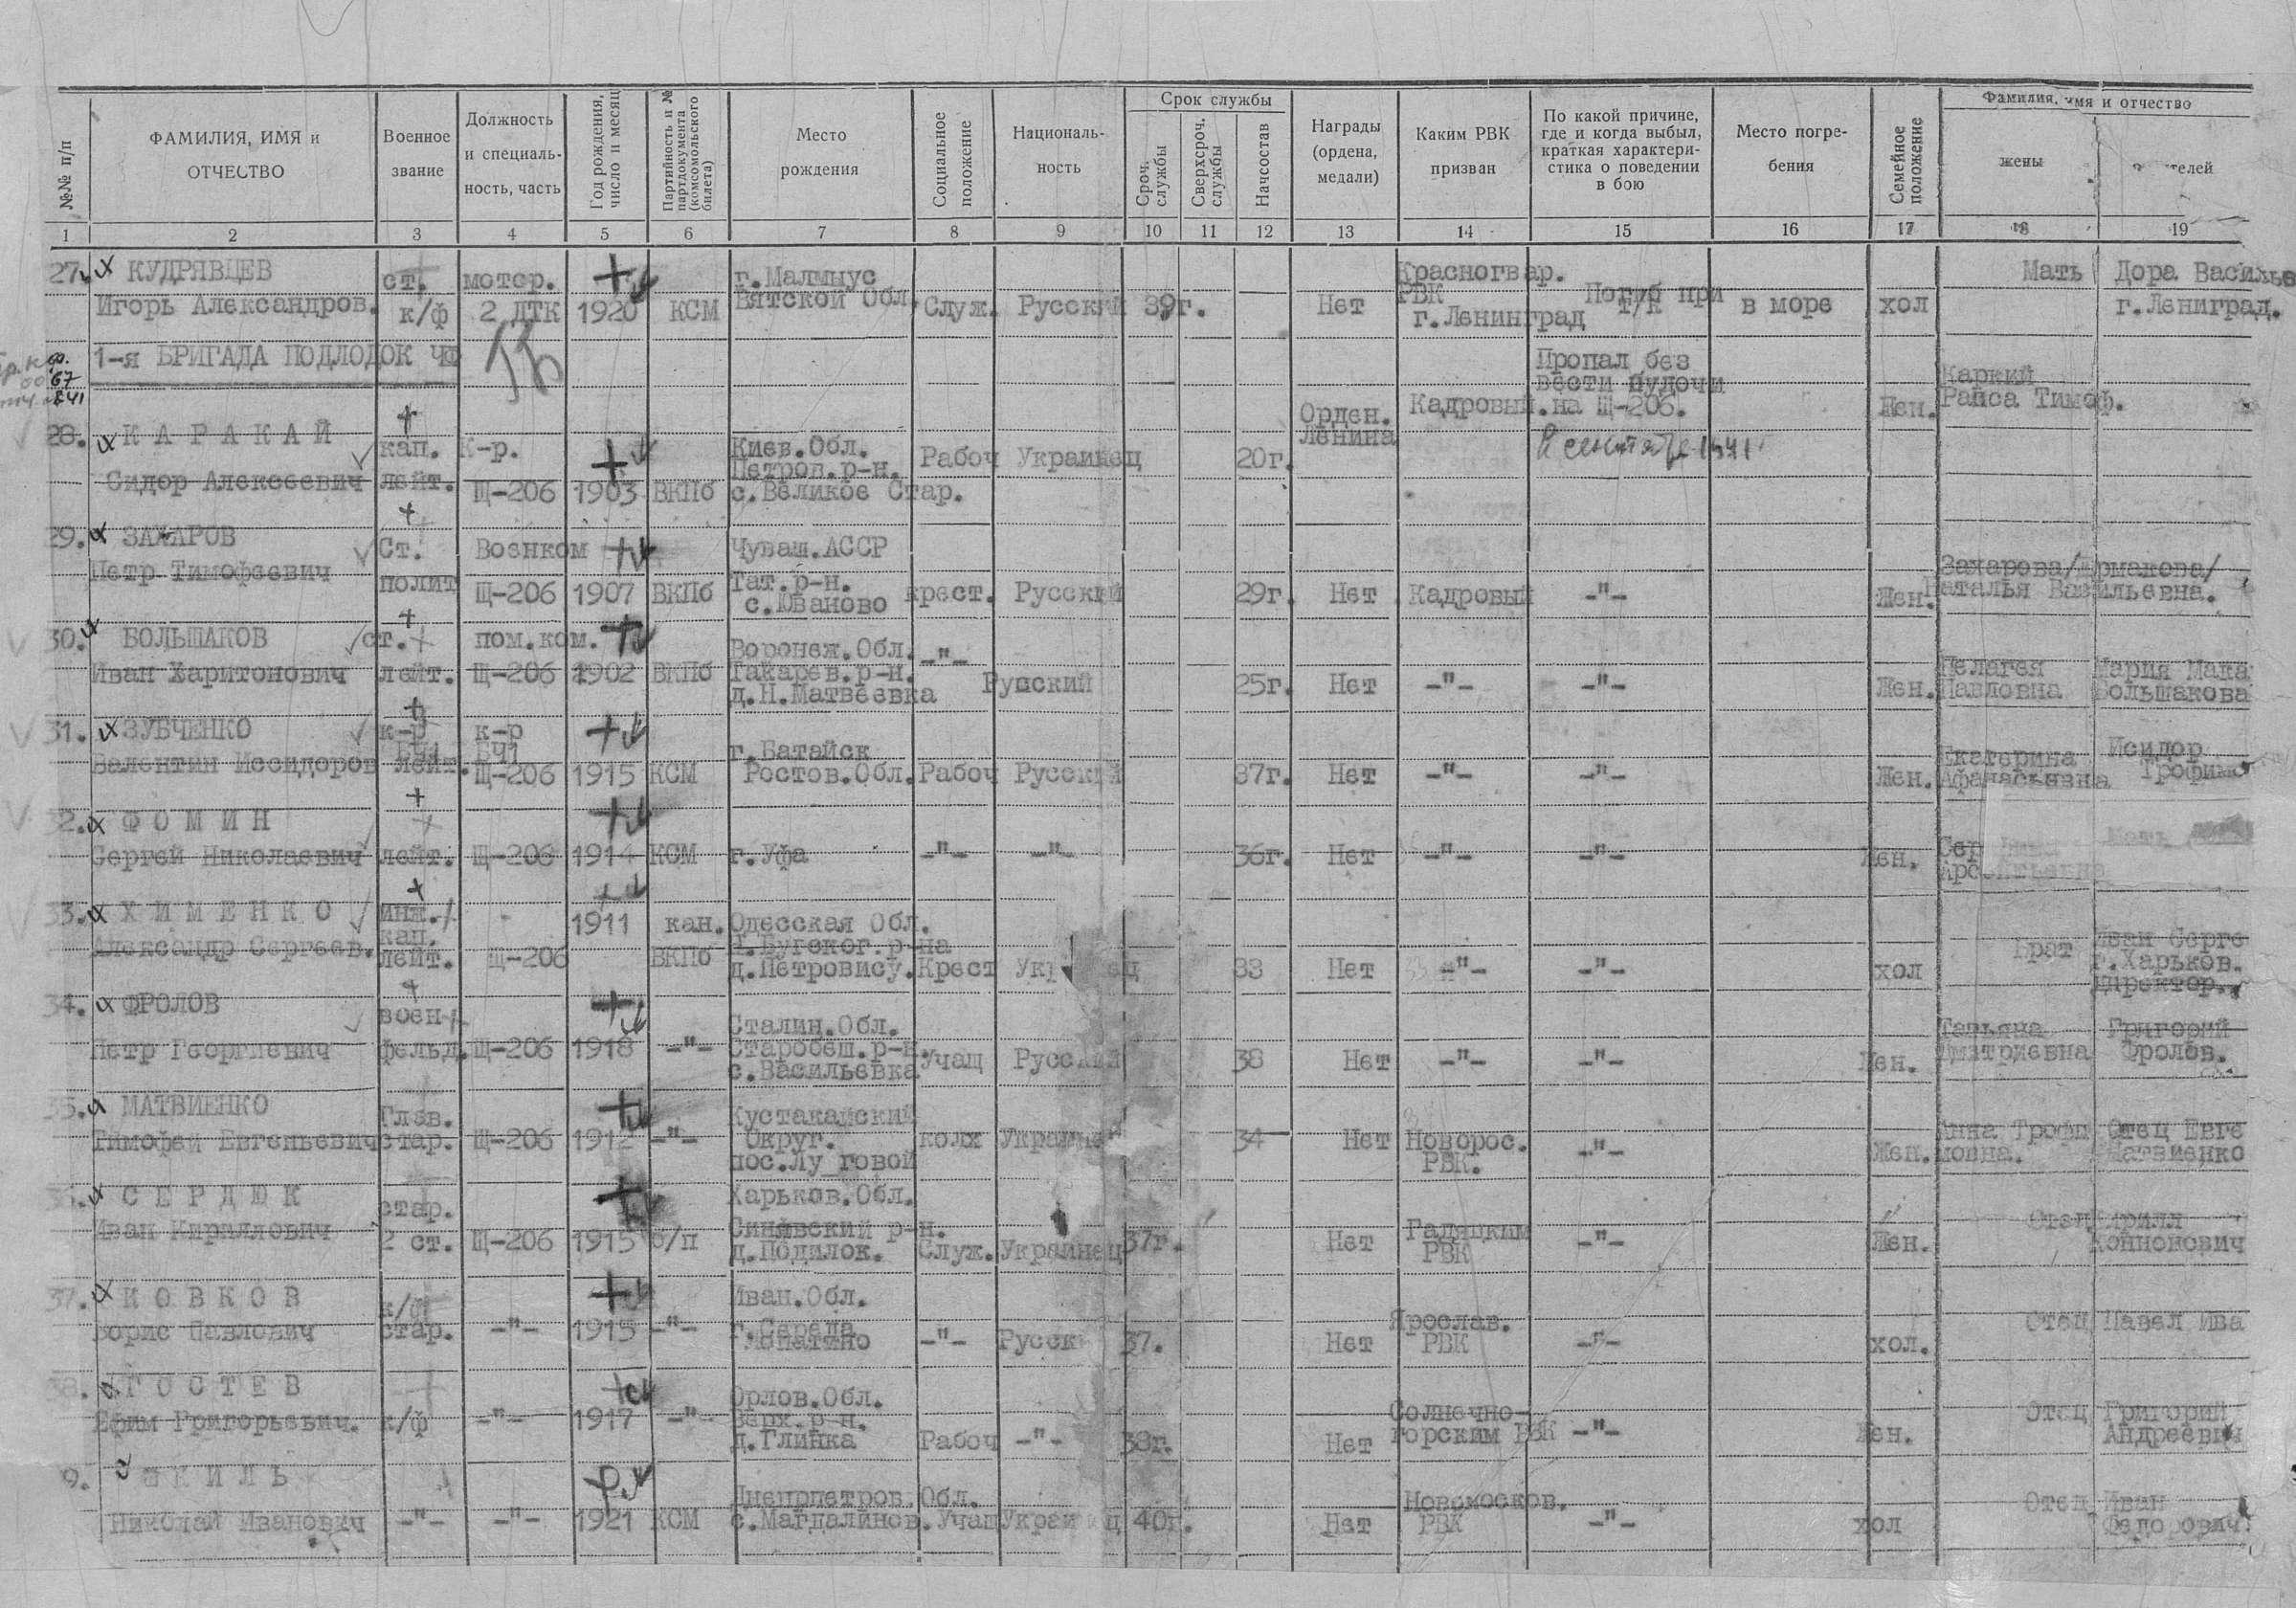 №№ п/п
ФАМИЛИЯ, ИМЯ и
ОТЧЕСТВО
Военное
звание
Должность
и специаль-
ность, часть
Год рождения,
число и месяц
Партийность и №
партдокумента
(комсомольского
билета)
Место
рождения
Социальное
положение
Националь-
ность
Срок службы
Сроч.
службы
Сверхсроч.
службы
Начсостав
Награды
(ордена,
медали)
Каким РВК
призван
По какой причине,
где и когда выбыл,
краткая характери-
стика о поведении
в бою
Место погре-
бения
Семейное
положение
Фамилия, имя и отчество
жены
1 2 3 4 5 6 7 8 9 10 11 12 13 14 15 16 17 18 19
27. КУДРЯВЦЕВ
Игорь Александров.
ст.
к/ф
мотор.
2 ДТК
1920
КСМ
г.Малмыус
Вятской Обл.
Служ.
Русский
39г.
Нет
Красногвар.
РВК
г.Ленинград
Погиб при
в море
хол
Мать
Дора Василье
г.Лениград.
1-я БРИГАДА ПОДЛОДОК ЧФ
67
28. КАРАКАЙ
Сидор Алексеевич
кап.
лейт.
К-р.
Щ-206
1903
ВКПб
Киев.Обл.
Петров.р-н.
с.Великое Стар.
Рабоч
Украинец
20г.
Орден.
Ленина
Кадровый.
Пропал без
вести будочи
на Щ-206.
В сентябре 1941
Жен.
Каркий
Раиса Тимоф.
29. ЗАХАРОВ
Петр Тимофеевич
Ст.
полит
Военком
Щ-206
1907
ВКПб
Чуваш.АССР
Тат.р-н.
с.Юваново
крест.
Русский
29г.
Нет
Кадровый
-"-
Жен.
Захарова/Ермакова/
Наталья Васильевна.
30. БОЛЬШАКОВ
Иван Харитонович
ст.
лейт.
пом.ком.
Щ-206
1902
ВКПб
Воронеж.Обл.
Такарев.р-н.
д.Н.Матвеевка
-"-
Русский
25г.
Нет
-"-
-"-
Жен.
Пелагея
Павловна
Мария Мака
Большакова
31. ЗУБЧЕНКО
Валентин Иссидоров
к-р
БЧ1
лейт.
к-р
БЧ1
Щ-206
1915
КСМ
г.Батайск
Ростов.Обл.
Рабоч
Русский
37г.
Нет
-"-
-"-
Жен.
Екатерина
Афанасьевна
Исидор
Трофимо
32. ФОМИН
Сергей Николаевич
лейт.
Щ-206
1914
КСМ
г.Уфа
-"-
-"-
36г.
Нет
-"-
-"-
Жен.
Мать
33. ХИМЕНКО
Александр Сергеев.
инж.
кап.
лейт.
Щ-206
1911
кан.
ВКПб
Одесская Обл.
д.Петровису.
Крест
33
Нет
-"-
-"-
хол
Брат
Иван Серге
г.Харьков.
Директор.
34. ФРОЛОВ
Петр Георгиевич
воен
фельд.
Щ-206
1918
-"-
Сталин.Обл.
Старобеш.р-н.
с.Васильевка
Учащ
Русский
38
Нет
-"-
-"-
Жен.
Татьяна
Дмитриевна
Григорий
Фролов.
35. МАТВИЕНКО
Тимофей Евгеньевич
Глав.
стар.
Щ-206
1912
-"-
Кустанайский
Округ.
пос.Лу говой
колх
Украинец
34
Нет
Новорос.
РВК.
-"-
Жен.
Анна Трофи
мовна.
Отец Евге
Матвиенко
СЕРДЮК
Иван Кириллович
стар.
2 ст.
Щ-206
1915
б/п
Харьков.Обл.
Синявский р-н.
д.Подилок.
Служ.
Украинец
37г.
Нет
Гадяцким
РВК
-"-
Жен.
Отец Кирилл
Кононович
37. КОВКОВ
Борис Павлович
к/ф
стар.
-"-
1915
-"-
Иван.Обл.
г.Середа
-"-
Русск
37.
Нет
Ярослав.
РВК
-"-
хол.
Отец Павел Ива
38. ГОСТЕВ
Ефим Григорьевич.
к/ф
-"-
1917
-"-
Орлов.Обл.
Верх.р-н.
д.Глинка
Рабоч
-"-
38г.
Нет
Солнечно-
горским РВК
-"-
Жен.
Отец Григорий
Андреевич
9.
Николай Иванович
-"-
-"-
1921
КСМ
Днепрпетров.Обл.
с.Магдалинов.
Учащ
Украинец
40г.
Нет
Новомосков.
РВК
-"-
хол
Отец Иван
Федорович